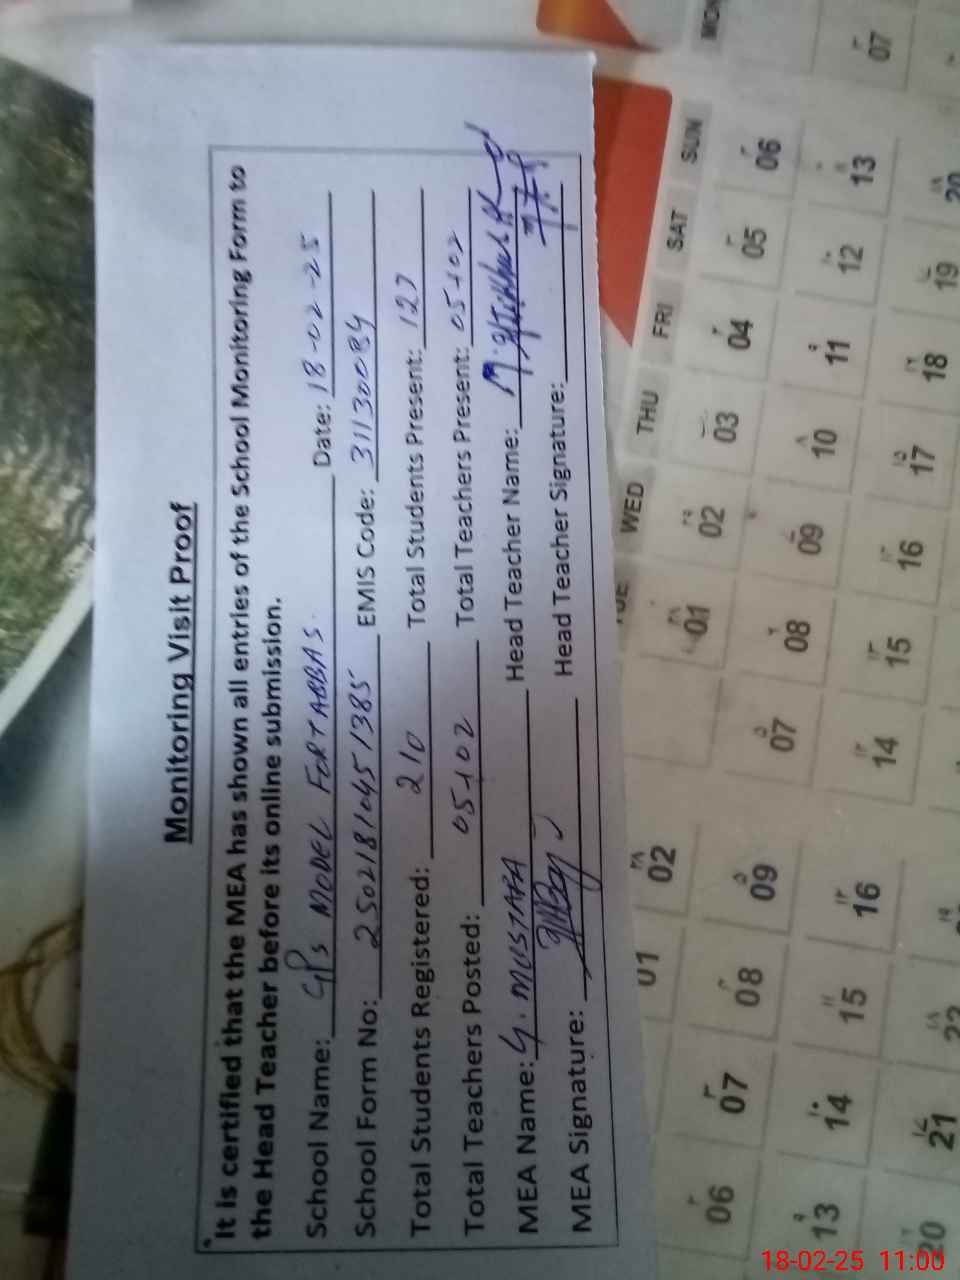 Monitoring Visit Proof
It is certified that the MEA has shown all entries of the School Monitoring Form to
the Head Teacher before its online submission.
School Name: GPS MODEL FORTABBAS. Date: 18-02-25
School Form No: 25021810451385 EMIS Code: 31130084
Total Students Registered: 210 Total Students Present: 127
Total Teachers Posted: 05+02 Total Teachers Present: 05+02
MEA Name: G. MUSTAFA Head Teacher Name: M.
MEA Signature: Head Teacher Signature:
MON
07
SUN
06
13
20
SAT
05
12
19
FRI
04
11
18
THU
03
10
17
WED
02
09
16
TUE
01
08
15
07
14
02
09
16
01
08
15
22
07
14
21
06
13
20
18-02-25 11:00